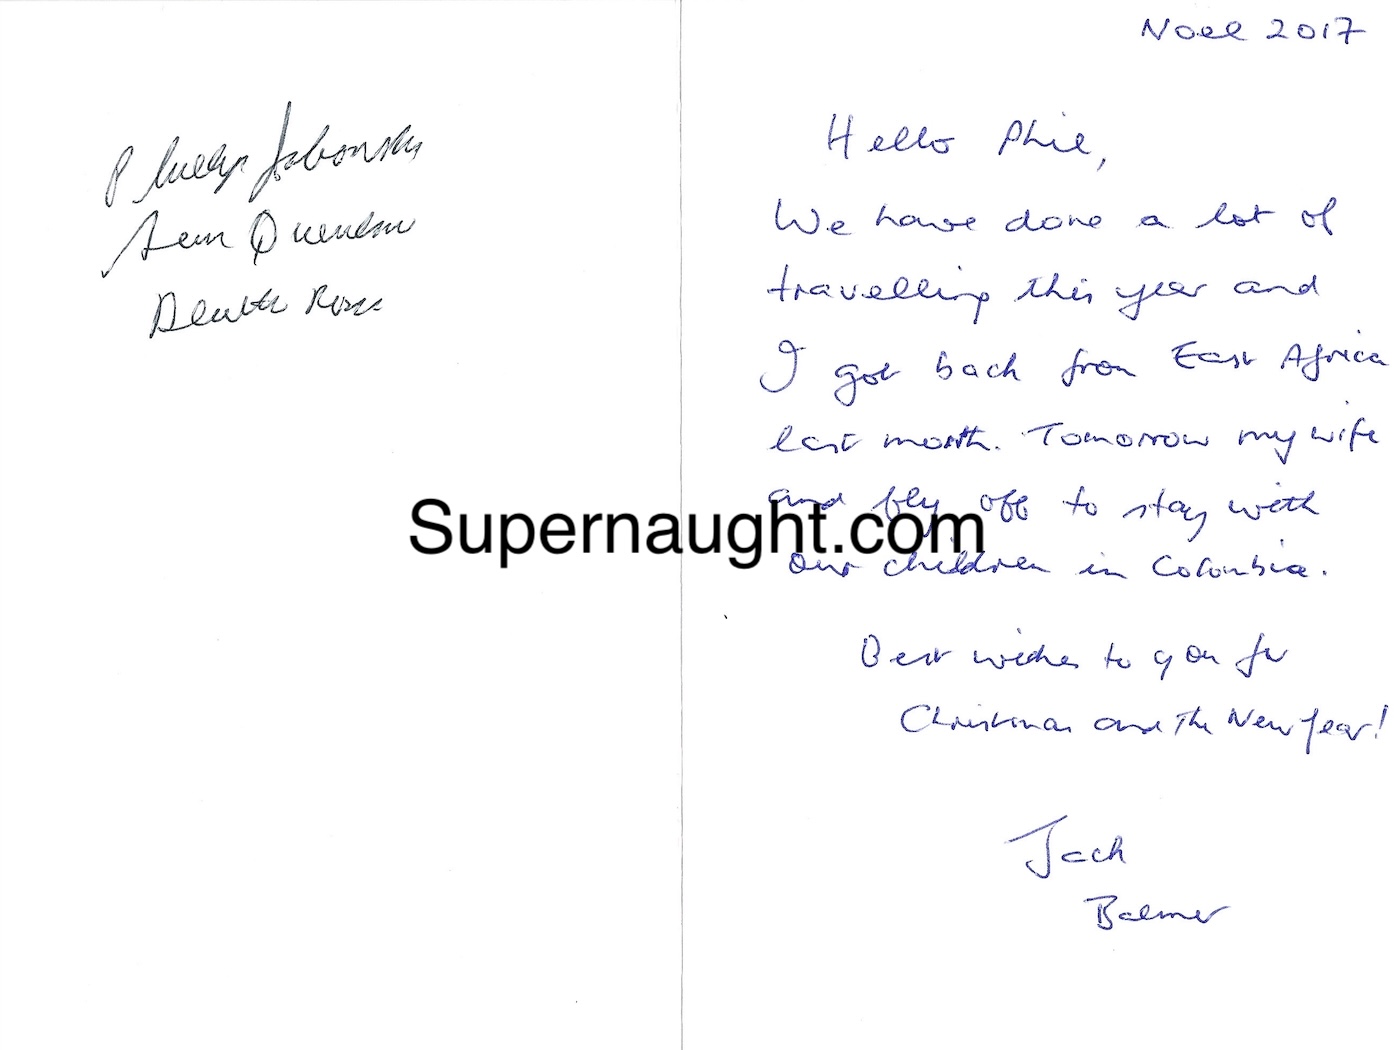 Phillip Jablonski
San Quentin
Death Row
Noel 2017
Hello Phil,
We have done a lot of
travelling this year and
I got back from East Africa
last month. Tomorrow my wife
and fly off to stay with
our children in Colombia.
Best wishes to you for
Christmas and the New Year!
Jack
Balmer
Supernaught.com